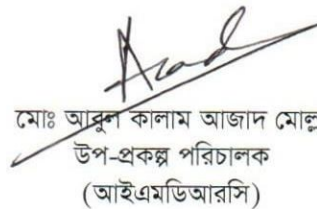 Azad
মোঃ আবুল কালাম আজাদ মোল্
উপ-প্রকল্প পরিচালক
(আইএমডিআরসি)